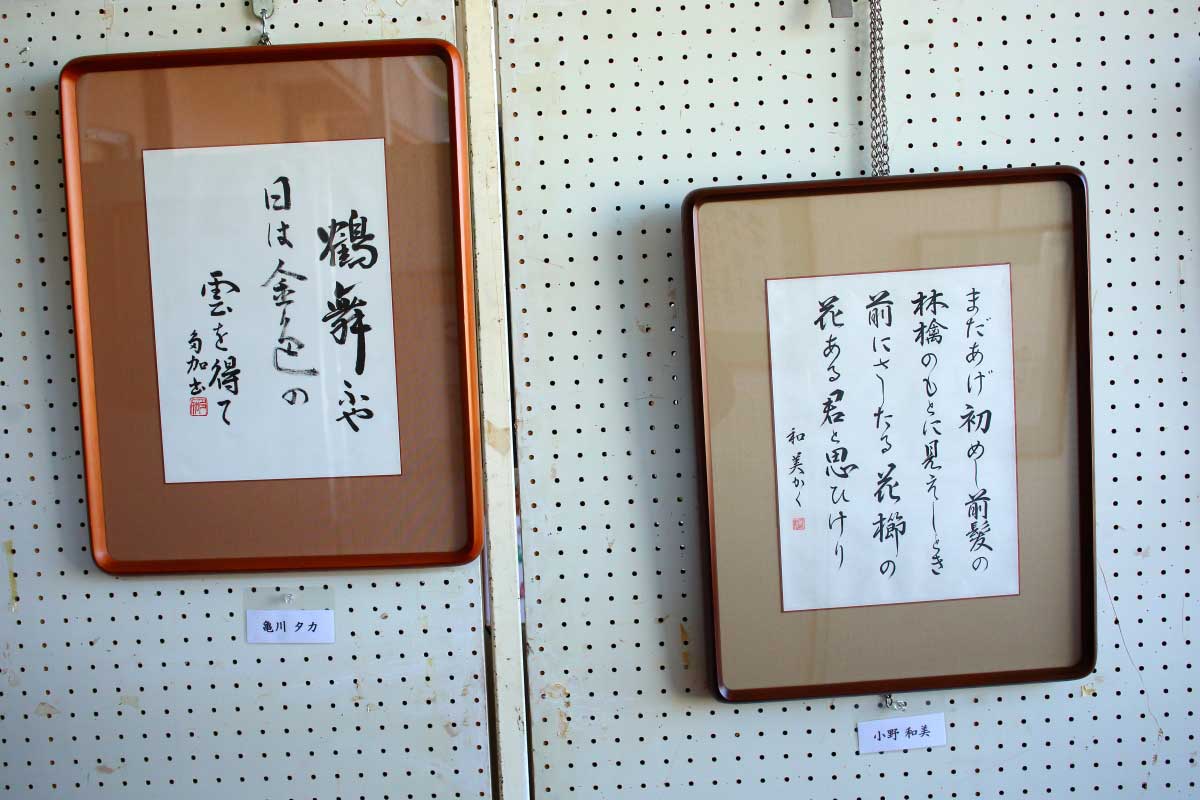 鶴舞ふや
日は金色の
雲を得て
多加書
亀川 タカ
まだあげ初めし前髪の
林檎のもとに見えしとき
前にさしたる花櫛の
花ある君と思ひけり
和美かく
小野 和美